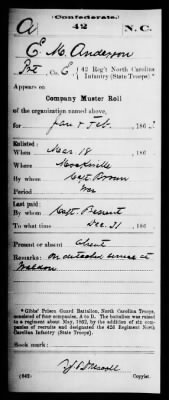 (Confederate.)
A 42 N.C.
E. M. Anderson
Pvt, Co. E, 42 Reg't North Carolina
Infantry (State Troops).*
Appears on
Company Muster Roll
of the organization named above,
for Jan & Feb., 186
Enlisted:
When Mar 18, 186
Where Mocksville
By whom Capt Brown
Period War
Last paid:
By whom Capt. Besent
To what time Dec. 31, 186
Present or absent Absent
Remarks: On detached service at
*Gibbs' Prison Guard Battalion, North Carolina Troops,
consisted of four companies, A to D. The battalion was raised
to a regiment about May, 1862, by the addition of six com-
panies of recruits and designated the 42d Regiment North
Carolina Infantry (State Troops).
Book mark:
(642) Copyist.